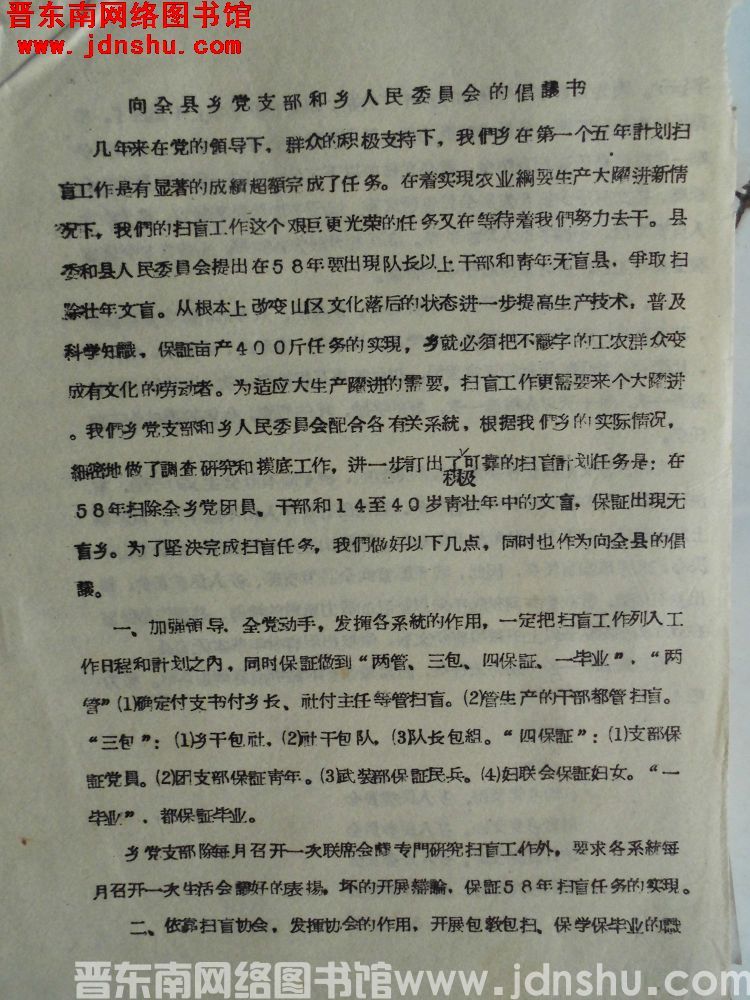 晋东南网络图书馆
www.jdnshu.com
向全县乡党支部和乡人民委員会的倡議书
几年来在党的領导下，群众的积极支持下，我們乡在第一个五年計划扫
盲工作是有显著的成績超額完成了任务。在着实現农业綱要生产大躍进新情
况下，我們的扫盲工作这个艰巨更光荣的任务又在等待着我們努力去干。县
委和县人民委員会提出在５８年要出現队长以上干部和青年无盲县，爭取扫
除壮年文盲。从根本上改变山区文化落后的状态进一步提高生产技术，普及
科学知識，保証亩产４００斤任务的实現，乡就必須把不識字的工农群众变
成有文化的劳动者。为适应大生产躍进的需要，扫盲工作更需要来个大躍进
。我們乡党支部和乡人民委員会配合各有关系統，根据我們乡的实际情况，
細密地做了調查研究和摸底工作，进一步訂出了可靠的扫盲計划任务是：在
积极
５８年扫除全乡党团員、干部和１４至４０岁青壮年中的文盲，保証出現无
盲乡。为了坚决完成扫盲任务，我們做好以下几点，同时也作为向全县的倡
議。
一、加强領导、全党动手，发揮各系統的作用，一定把扫盲工作列入工
作日程和計划之內，同时保証做到“两管、三包、四保証、一毕业”，“两
管”⑴确定付支书付乡长、社付主任等管扫盲。⑵管生产的干部都管扫盲。
“三包”：⑴乡干包社，⑵社干包队，⑶队长包組。“四保証”：⑴支部保
証党員。⑵团支部保証青年。⑶武装部保証民兵。⑷妇联会保証妇女。“一
毕业”，都保証毕业。
乡党支部除每月召开一次联席会議专門研究扫盲工作外，要求各系統每
月召开一次生活会議好的表揚，坏的开展辯論，保証５８年扫盲任务的实現。
二、依靠扫盲协会，发揮协会的作用，开展包教包扫、保学保毕业的識
晋东南网络图书馆www.jdnshu.com